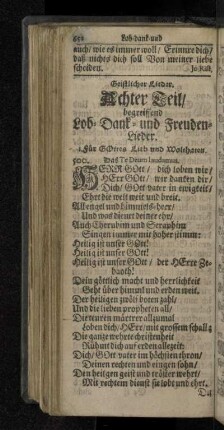 Lob-dank-und
auch/ wie es immer woll/ Erinnre dich/
daß nichts dich soll Von meiner liebe
scheiden.
Geistlicher Lieder.
Achter Teil/
begreiffend
Lob- Dank- und Freuden-
Lieder.
1. Für GOttes Lieb und Wolthaten.
Das Te Deum laudamus.
HERR GOtt/ dich loben wir/
HErr GOtt/ wir danken dir/
Dich/ GOtt vater in ewigkeit/
Ehrt die welt weit und breit.
All engel und himmels-heer/
Und was dienet deiner ehr/
Auch Cherubim und Seraphim
Singen immer mit hoher stimm:
Heilig ist unser GOtt!
Heilig ist unser GOtt!
Heilig ist unser GOtt/ der HErre Ze-
baoth!
Dein göttlich macht und herrlichkeit
Geht über himml und erden weit.
Der heiligen zwölf boten zahl/
Und die lieben propheten all/
Die teuren märtrer allzumal
Loben dich/ HErr/ mit grossem schall;
Die ganze wehrte christenheit
Rühmt dich auf erden allezeit.
Dich/ GOtt vater im höchsten thron/
Deinen rechten und einigen sohn/
Den heilgen geist und tröster wehrt/
Mit rechtem dienst sie lobt und ehrt.